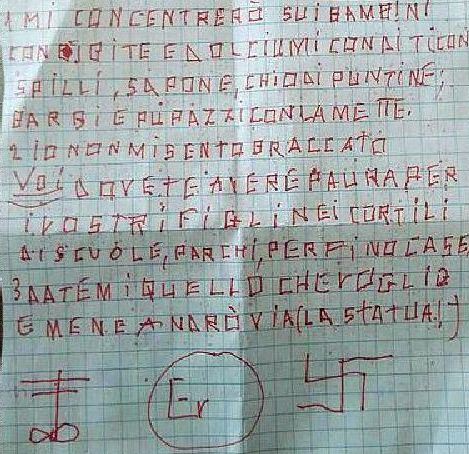 1 MI CONCENTRERÒ SUI BAMBINI
CON BIBITE E DOLCIUMI CONDITI CON
SPILLI, SAPONE, CHIODI PUNTINE;
BARBIE PUPAZZI CON LAMETTE.
2 IO NON MI SENTO BRACCATO
VOI DOVETE AVERE PAURA PER
I VOSTRI FIGLI NEI CORTILI
DI SCUOLE, PARCHI, PERFINO CASE
3 DATEMI QUELLO CHE VOGLIO
E ME NE ANDRÒ VIA (LA STATUA!)
Er